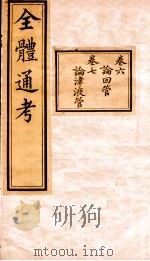 卷六
論回管
卷七
論津液管
全體通考
mtoou.info